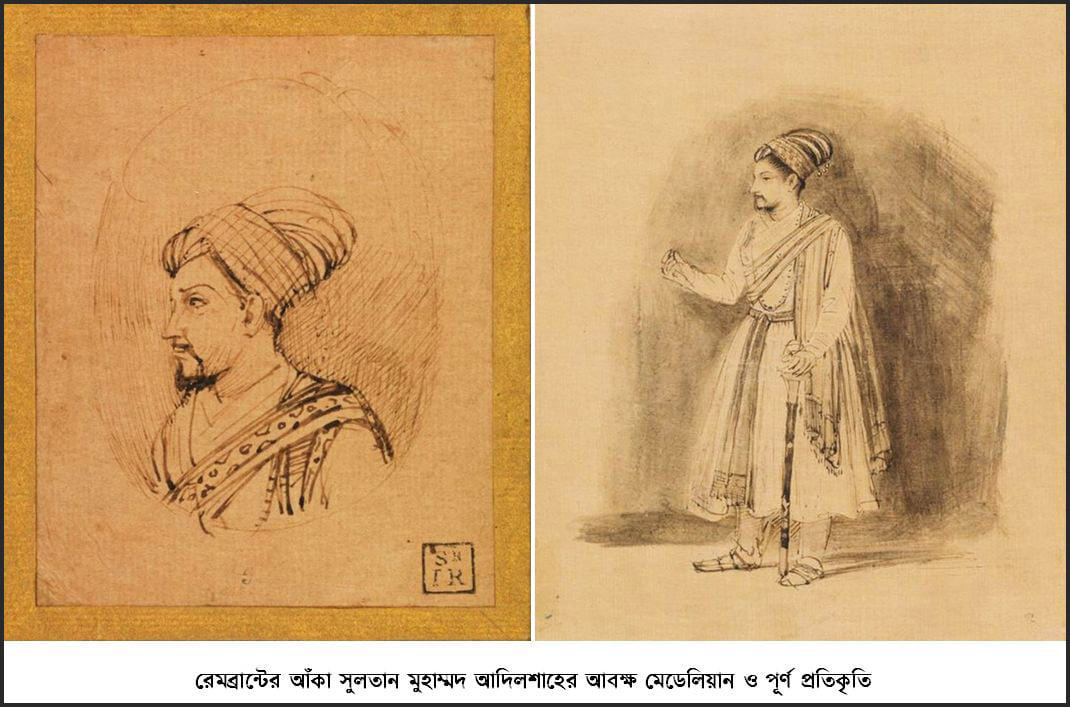 SR
IR
রেমব্রান্টের আঁকা সুলতান মুহাম্মদ আদিলশাহের আবক্ষ মেডেলিয়ান ও পূর্ণ প্রতিকৃতি